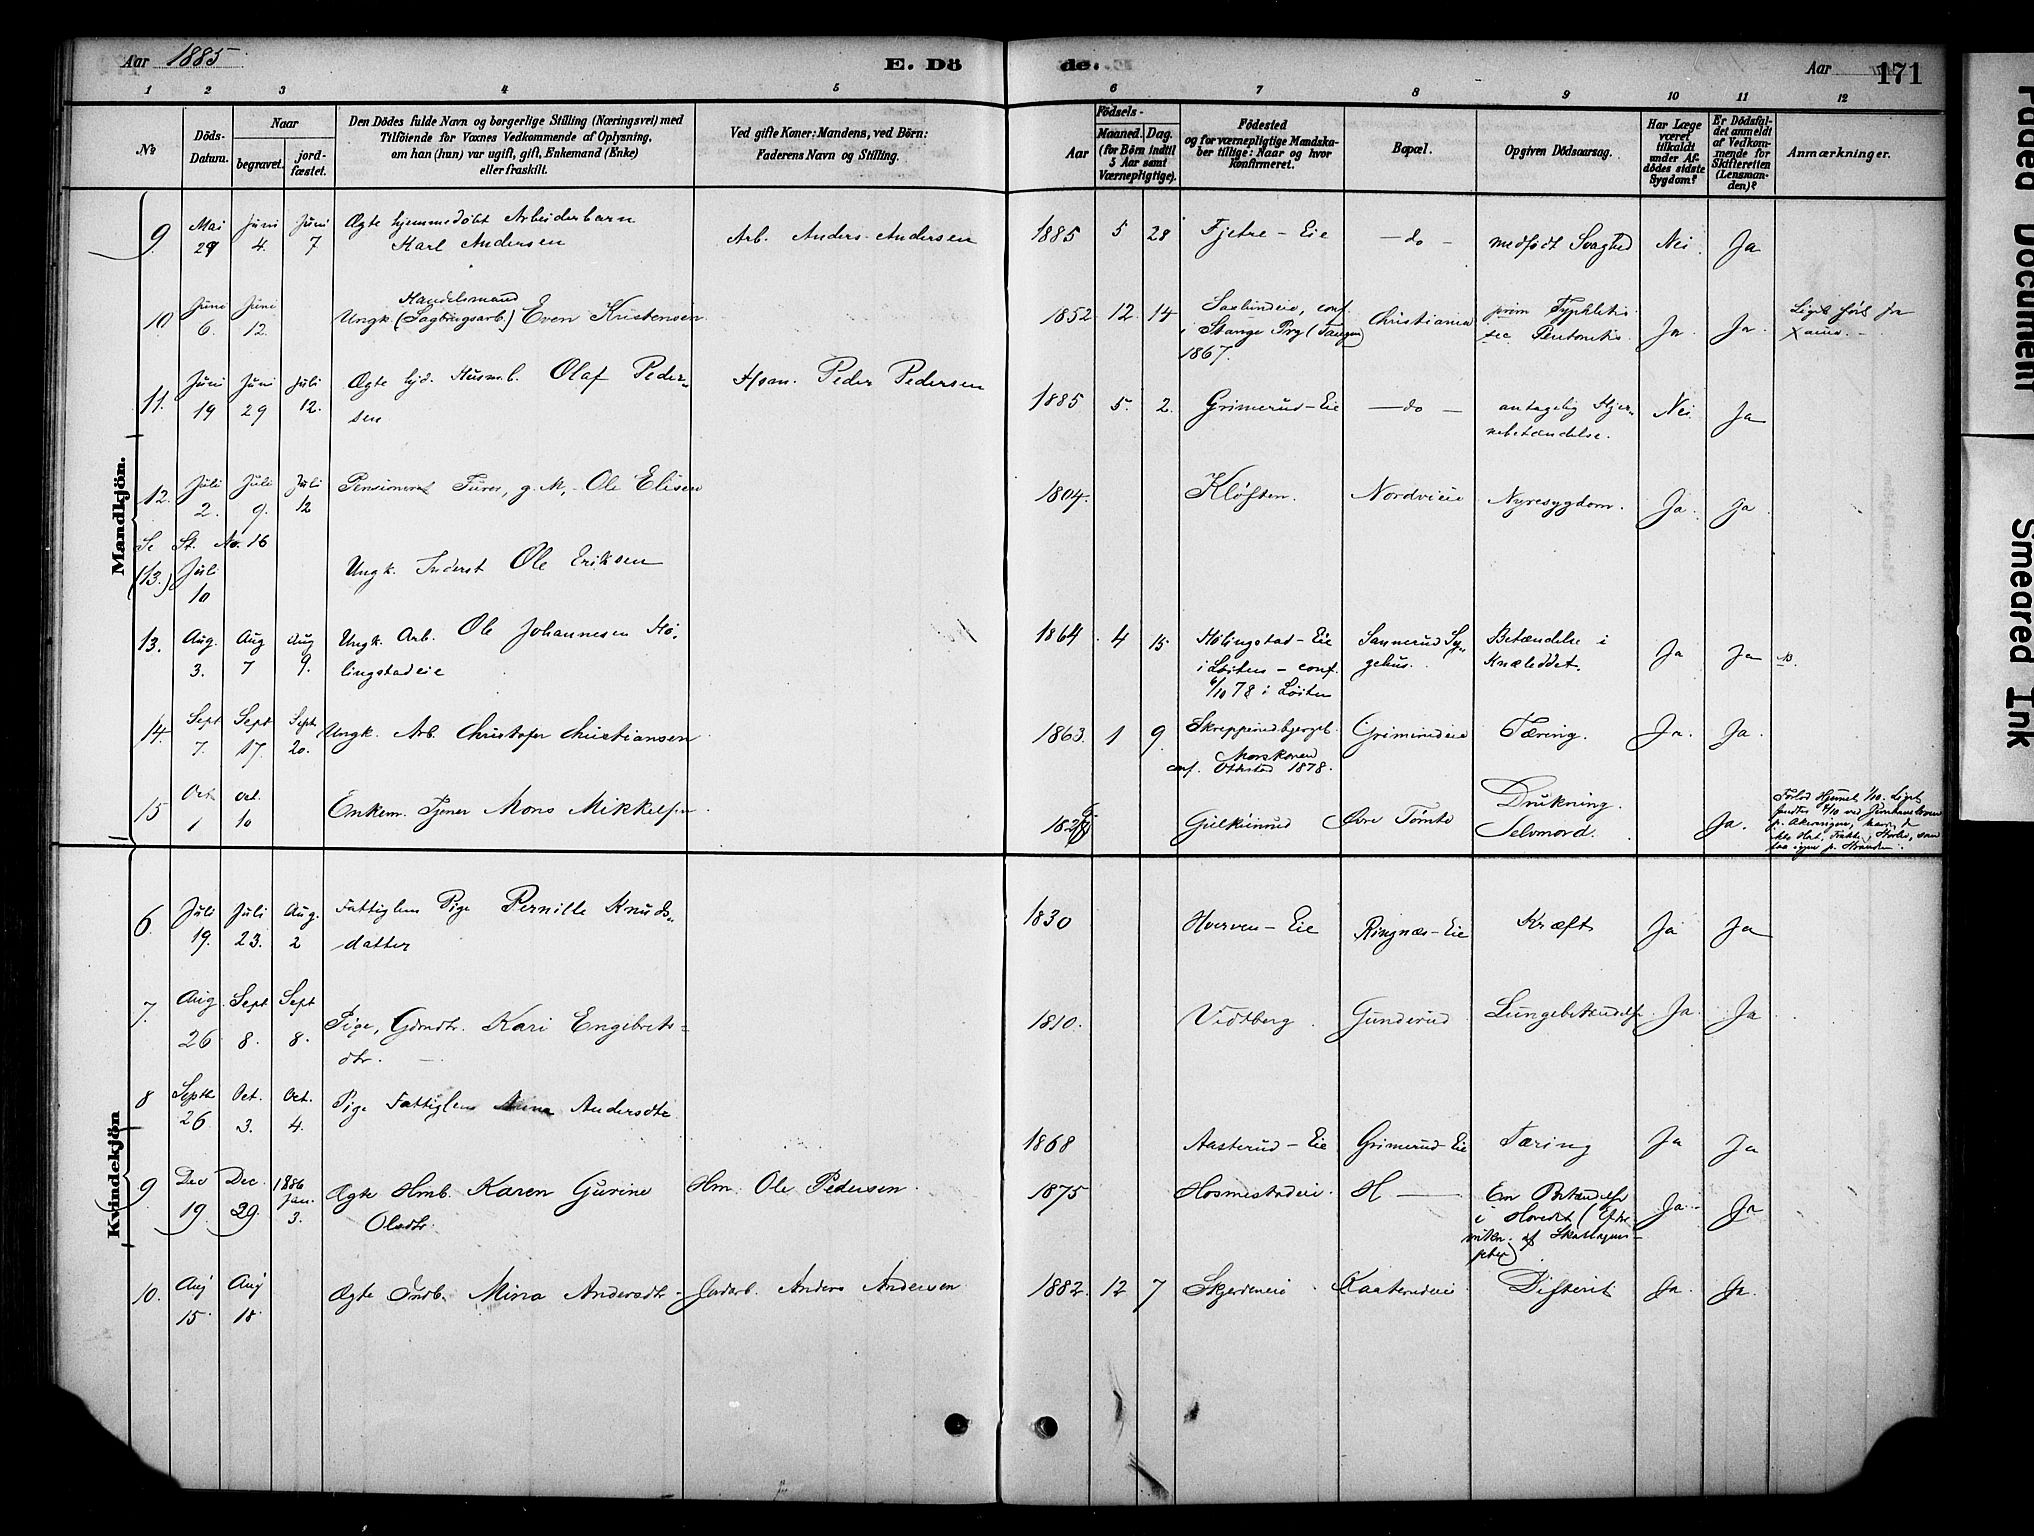 Aar 1885
E. Dö
de.
Aar
171
1 2 3 4 5 6 7 8 9 10 11 12
No
Döds-Datum.
Naar
begravet.
jord-fæstet.
Den Dödes fulde Navn og borgerlige Stilling (Næringsvei) med
Tilföiende for Voxnes Vedkommende af Oplysning,
om han (hun) var ugift, gift, Enkemand (Enke)
eller fraskilt.
Ved gifte Koner: Mandens, ved Börn:
Faderens Navn og Stilling.
Födsels-
Aar
Maaned.
Dag.
(for Börn indtil
5 Aar samt
Værnepligtige).
Födested
og for værnepligtige Mandska-
ber tillige: Naar og hvor
konfirmeret.
Bopæl.
Opgiven Dödsaarsag.
Har Læge
været
tilkaldt
under Af-
dödes sidste
Sygdom?
Er Dödsfal-
det anmeldt
af Vedkom-
mende for
Skifteretten
(Lensman-
den)?
Anmærkninger.
Mandkjön.
9. Mai 29 Juni 4. Juni 7 Ægte hjemmedöbt Arbeiderbarn
Karl Andersen
Arb. Anders Andersen 1885 5 28 Fjetre-Eie -do- medfödt Svaghed Nei Ja
10 Juni 6. Juni 12. Handelsmand
Ungk. (Sagbrugsarb.) Even Kristensen
1852 12 14 conf.
i Stange Prg (Tangen)
1867.
Christiania prim Typhlitis
sec Peritonitis. Ja Ja
11. Juni 19 Juni 29 Juli 12. Ægte hjd. Husm.b. Olaf Peder-
sen
Hsm. Peder Pedersen 1885 5. 2. Grimerud-Eie -do- antagelig Hjer-
nebetændelse. Nei Ja
12. Juli 2. Juli 9. Juli 12 Pensioneret Furer, g. M, Ole Elisen
1804. Kløften. Nordvieie Nyresygdom. Ja Ja
Se St. No. 16
(13.) Juli 10 Ungk. Inderst Ole Eriksen
13. Aug. 3. Aug 7 Aug 9. Ungk. Arb. Ole Johannesen Hø-
lingstadeie
1864 4 15 Hølingstad-Eie
i Løiten - conf.
6/10 78 i Løiten
Sannerud Sy-
gehus. Betændelse i
Knæleddet. Ja Ja
14. Sept 7. Sept 17. Sept 20. Ungk. Arb. Christofer Christiansen
1863. 1 9.
Morskoven
conf. Ottestad 1878.
Grimerudeie Tæring. Ja. Ja.
15 Oct 1 Oct. 10 Enkem. Tjener Mons Mikkelsen
Gulkinrud Øvre Tømte Drukning.
Selvmord. Ja.
Forlod Hjemmet 1/10. Liget
Kvindekjön
6. Juli 19. Juli 23. Aug. 2 Fattiglem Pige Pernille Knuds-
datter
1830 Hverven-Eie Ringnæs-Eie Kræft Ja Ja
7. Aug 26 Sept 8. Sept 8. Pige, Gdmdtr. Kari Engebrets-
dtr.
1810. Vidtberg Gunderud Lungebetændelse Ja. Ja
8 Septb 26. Oct. 3. Oct. 4. Pige Fattiglem Anna Andersdtr
1868 Aasterud-Eie Grimerud-Eie Tæring Ja Ja
9 Dec 19. Dec. 29. 1886 Jan. 3. Ægte Hmb. Karen Gurine
Olsdtr.
Hm. Ole Pedersen. 1875 Hosmestadeie. H - En Betændelse
i Hovedet (Efter-
virkn. af Skarlagens-
feber) Ja. Ja
10. Aug 15 Aug 18 Ægte Indb. Mina Andersdtr.
Anders Andersen 1882. 12 7 Kaaterudeie Difterit Ja. Ja.
Faded Document
Smeared Ink